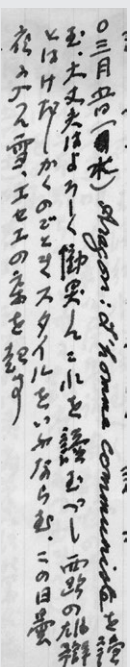 ○三月五日(水) Aragon: L'homme communiste を読
む、大丈夫はよろしく慟哭してこれを讀むべし 西路の雄辯
とはけだしかくのごときスタイルをいふならむ、この日曇
夜みぞれ雪、エセエの案を記す